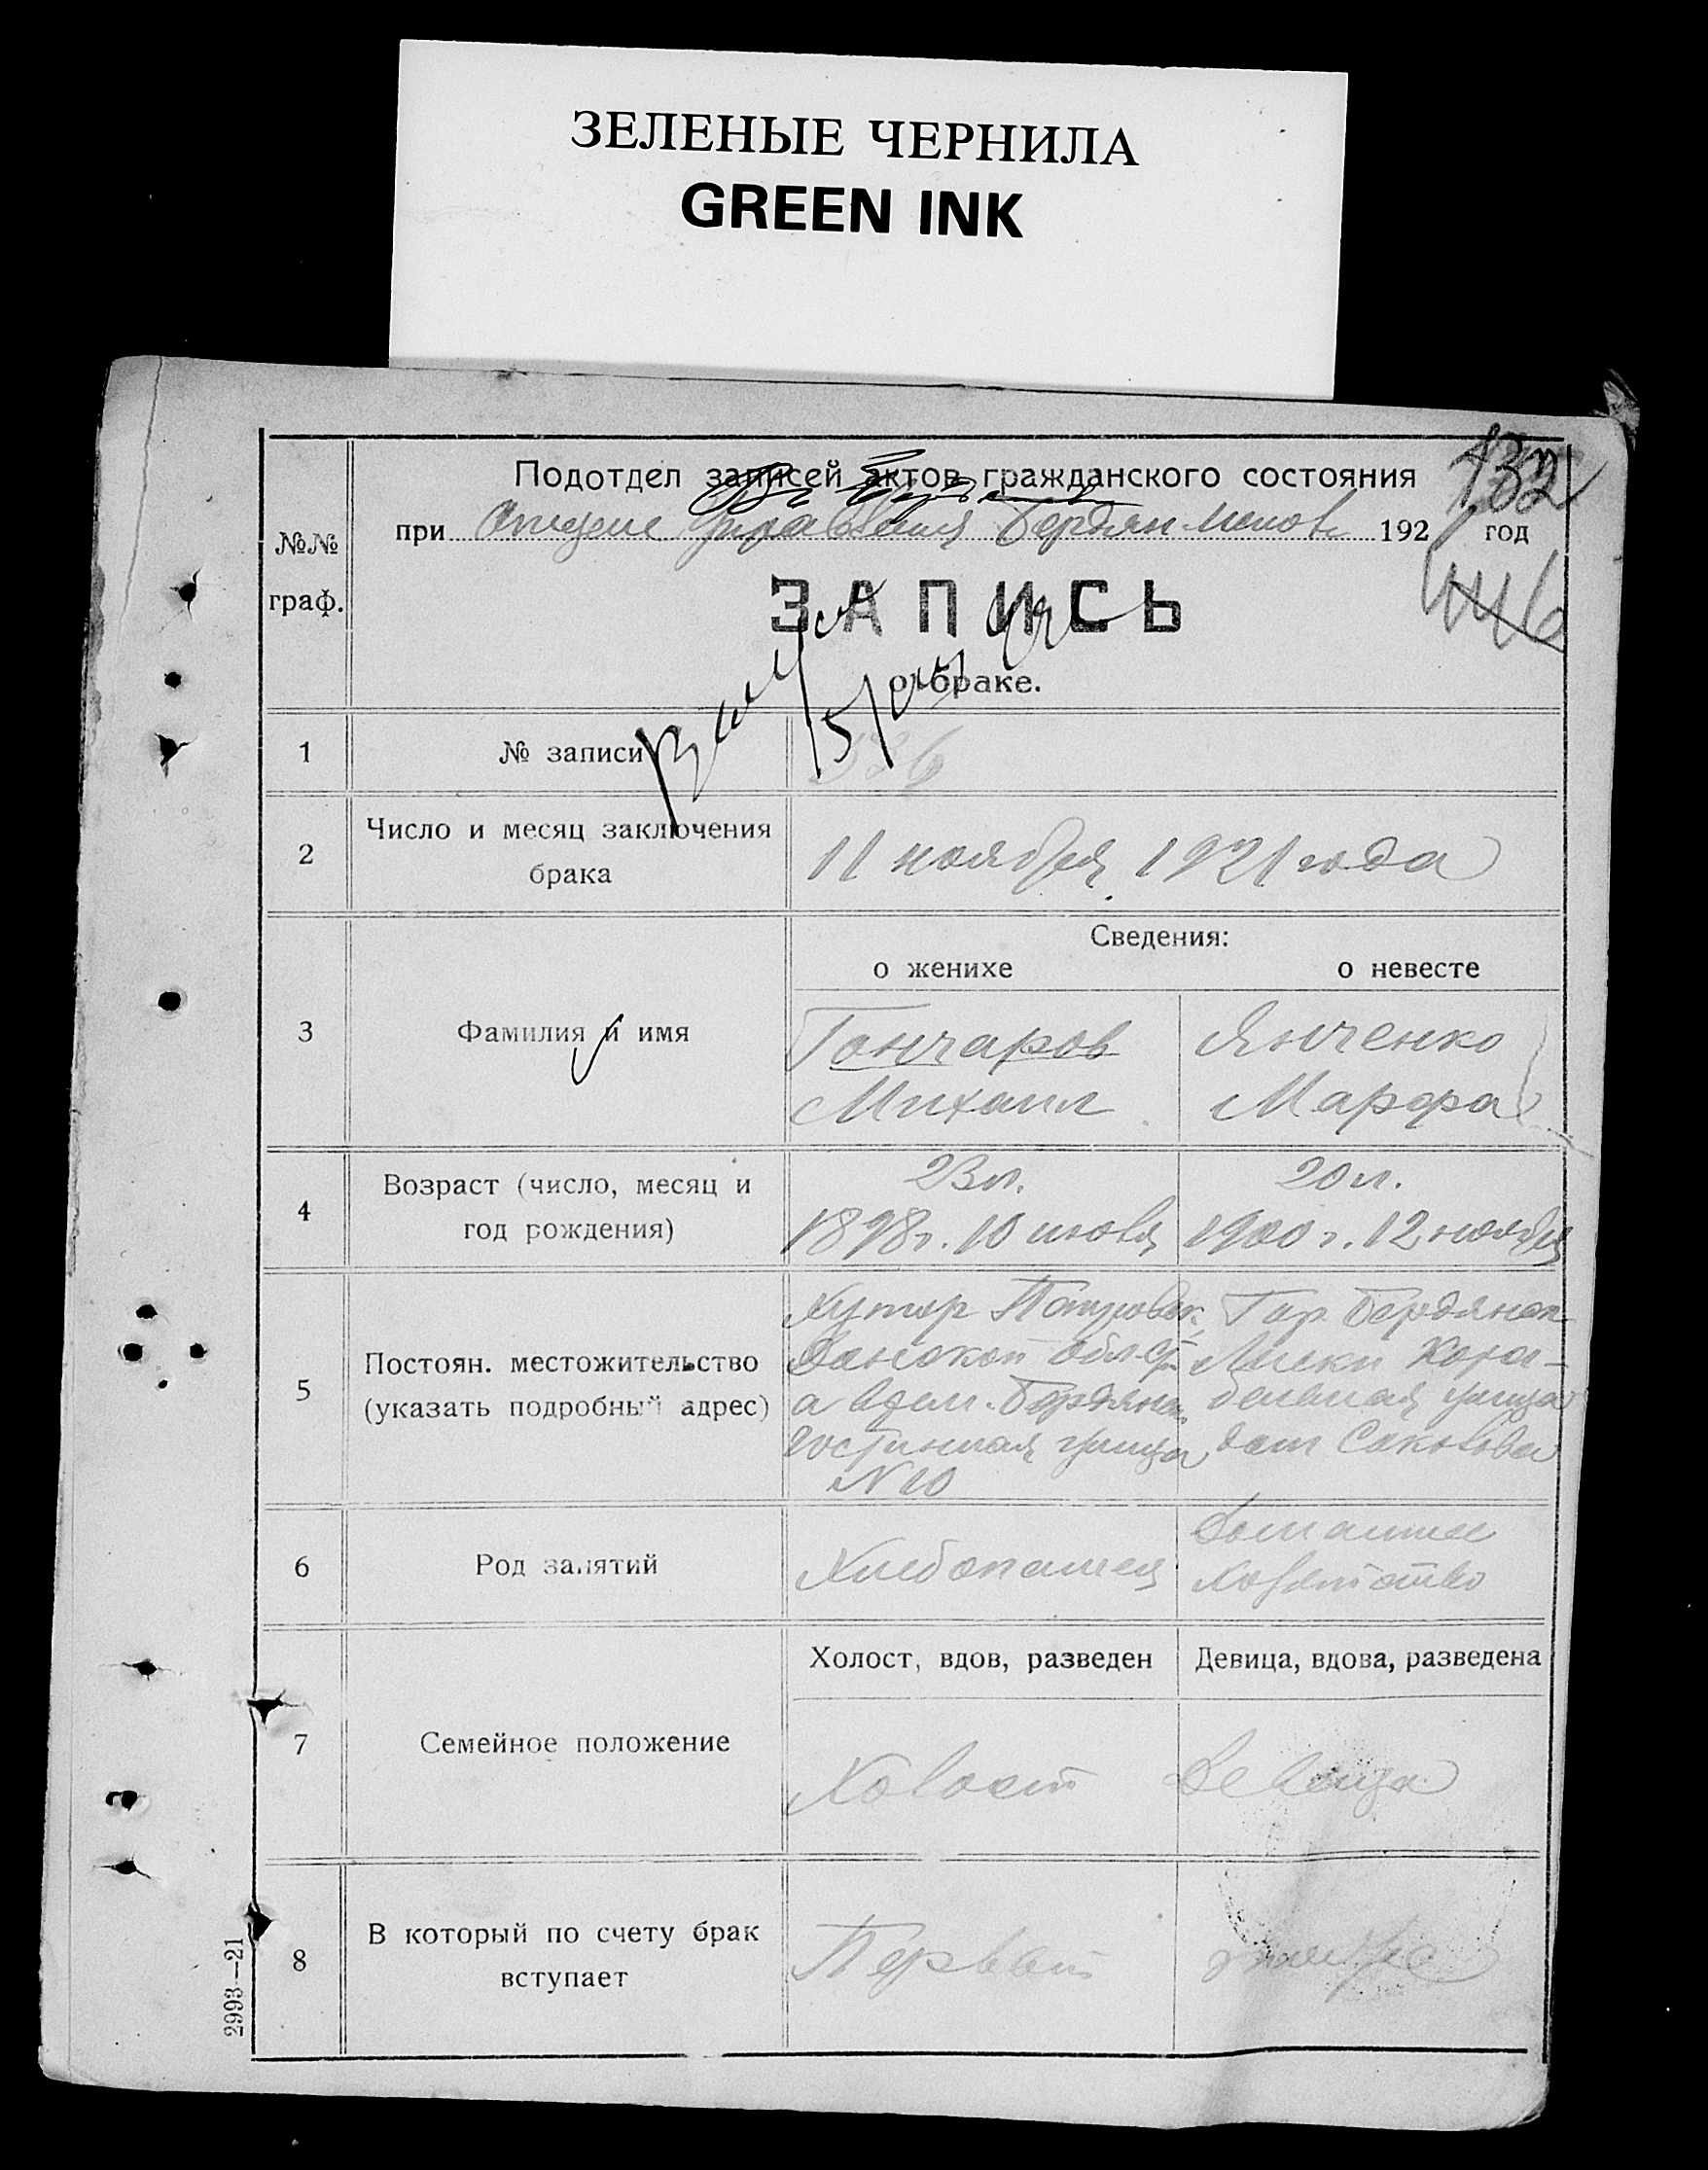 ЗЕЛЕНЫЕ ЧЕРНИЛА
GREEN INK
132
Подотдел записей актов гражданского состояния
при Отделе Управления Бердян 1921 год
№№ граф.
ЗАПИСЬ
о браке.
1 № записи 336
2 Число и месяц заключения
брака
11 ноября 1921 года
Сведения:
о женихе о невесте
3 Фамилия и имя
Гончаров Янченко
Михаил Марфа
4 Возраст (число, месяц и
год рождения)
23 л. 20 л.
1898 г. 10 1900 г. 12 ноября
5 Постоян. местожительство
(указать подробный адрес)
Хутор Гор. Бердянск
Донской Лиски
а Бердянск улица
улица дом Соколова
N 10
6 Род занятий
Хлебопашец Домашнее
хозяйство
7 Семейное положение
Холост, вдов, разведен Девица, вдова, разведена
Холост Девица
8 В который по счету брак
вступает
Первый
2993—21